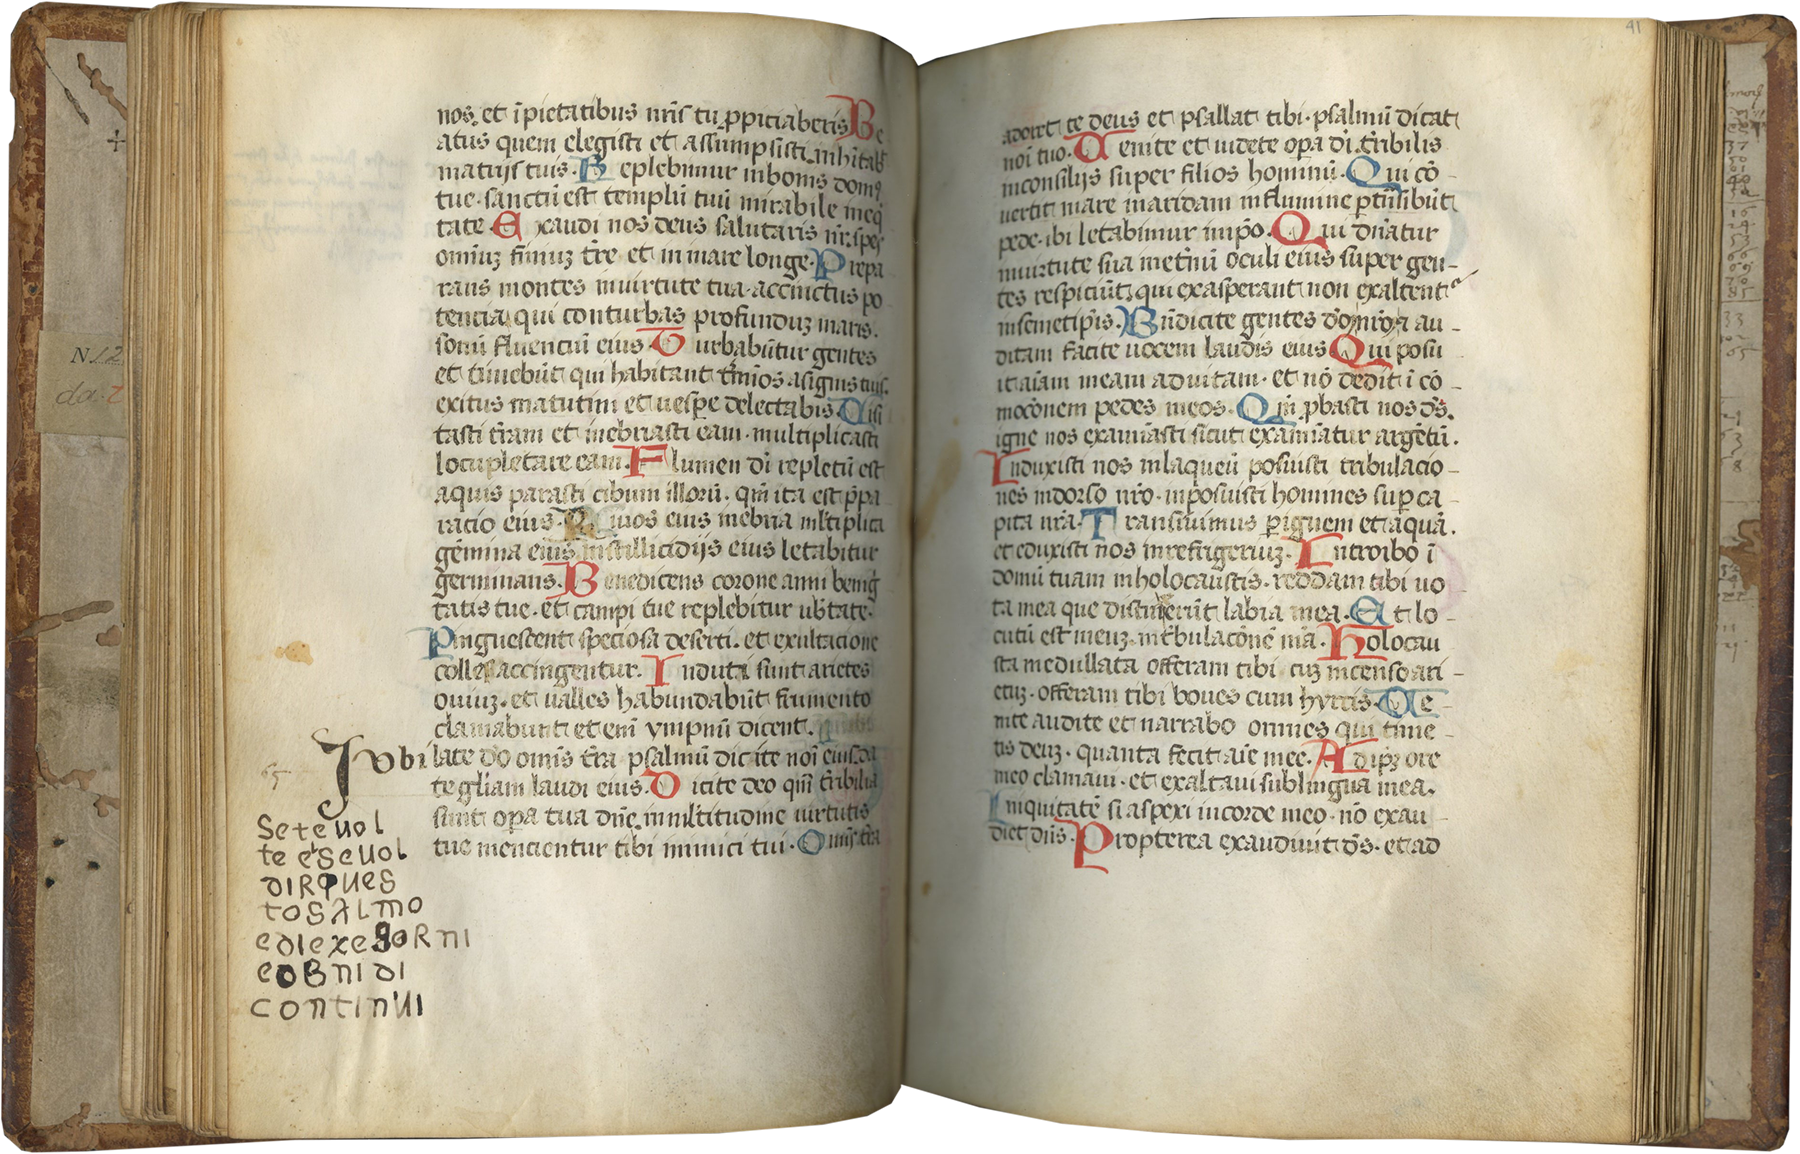 nos. et īpietatibus nr̄is tu ꝓpiciaberis Be
atus quem elegisti et assumpsisti. inhītab̄
inatrijs tuis. Replebimur inbonis domꝰ
tue. sanctū est templū tuū mirabile ineq̄
tate. Exaudi nos deus salutaris nr̄. spes
omniuꝫ finiuꝫ tr̄e et in mare longe. Prepa
rans montes invirtute tua. accinctus po
tencia qui conturbas profunduꝫ maris.
sonū fluctuū eius. Turbabūtur gentes
et timebūt qui habitant tm̄ios asignis tuis.
exitus matutini et vespe delectabis. Uisi
tasti tr̄am et inebriasti eam. multiplicasti
locupletare eam. Flumen dī repletū est
aquis parasti cibum illorū. qm̄ ita est p̄pa
racio eius. Rivos eius inebria ml̄tiplica
gēmina eius instillicidijs eius letabitur
germinans. Benedicens corone anni benig̅
tatis tue. et campi tue replebūtur vb̄tate.
Pinguescent speciosa deserti. et exultacione
colles accingentur. Induti sunt arietes
ouiuꝫ. et valles habundabūt frumento
clamabunt et enī ympnū dicent.
Jubilate dō omīs tr̄a psalmū dicite noī eius. da
te glīam laudi eius. Dicite deo qm̄ tr̄ibilia
sunt opa tua dn̄e. inml̄titudine virtutis
tue mencientur tibi inimici tui. Omīs tr̄a
65
Seteuol
te eSeuol
diRques
toSALmo
ediexegoRni
eogni di
continui
41
adoret te deus et psallat tibi. psalmū dicat
noī tuo. Uenite et uidete opa dī. tr̄ibilis
inconsilijs super filios hominū. Qui cō-
vertit mare inaridam influmine ptn̄sibūt
pede. ibi letabimur inip̄o. Qui dn̄atur
invirtute sua inet̄nū oculi eius super gen-
tes respiciūt. qui exasperant non exaltent̄
insemetip̄is. Bn̄dicite gentes dō nrō. au-
ditam facite vocem laudis eius. Qui posu
it aīam meam aduitam. et nō dedit ī cō-
mocōnem pedes meos. Qm̄ ꝓbasti nos ds̄.
igne nos examīasti sicut examīatur argētū.
Induxisti nos inlaqueū posuisti tribulacio-
nes indorso nrō. inposuisti homines sup ca-
pita nrā. Transiuimus p ignem et aquā.
et eduxisti nos inrefrigeriuꝫ. Introibo ī
domū tuam inholocaustis. reddam tibi vo
ta mea que distinxerūt labia mea. Et lo-
cutū est meuꝫ. intbulacōnē mā. Holocau
sta medullata offeram tibi cuꝫ incenso ari-
etuꝫ. offeram tibi boves cum hyrcis. Ue-
nite audite et narrabo omnes qui time-
tis deuꝫ. quanta fecit aīe mee. Adip̄ꝫ ore
meo clamaui. et exaltaui sublingua mea.
Iniquitatē si aspexi incorde meo. nō exau-
diet dn̄s. Propterea exaudiuit ds̄. et ad